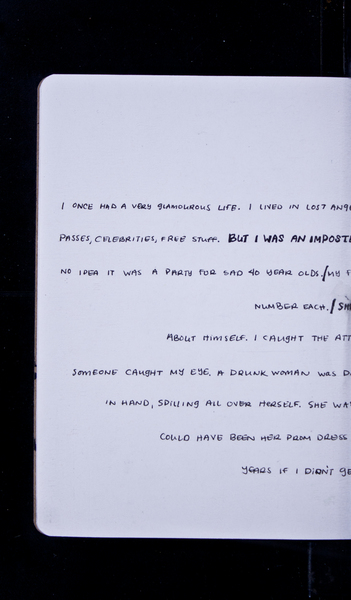 I ONCE HAD A VERY GLAMOUROUS LIFE. I LIVED IN LOST ANG
PASSES, CELEBRITIES, FREE STUFF. BUT I WAS AN IMPOST
NO IDEA IT WAS A PARTY FOR SAD 40 YEAR OLDS./MY F
NUMBER EACH./SH
ABOUT HIMSELF. I CAUGHT THE ATT
SOMEONE CAUGHT MY EYE. A DRUNK WOMAN WAS D
IN HAND, SPILLING ALL OVER HERSELF. SHE WA
COULD HAVE BEEN HER PROM DRESS
YEARS IF I DIDN'T GE